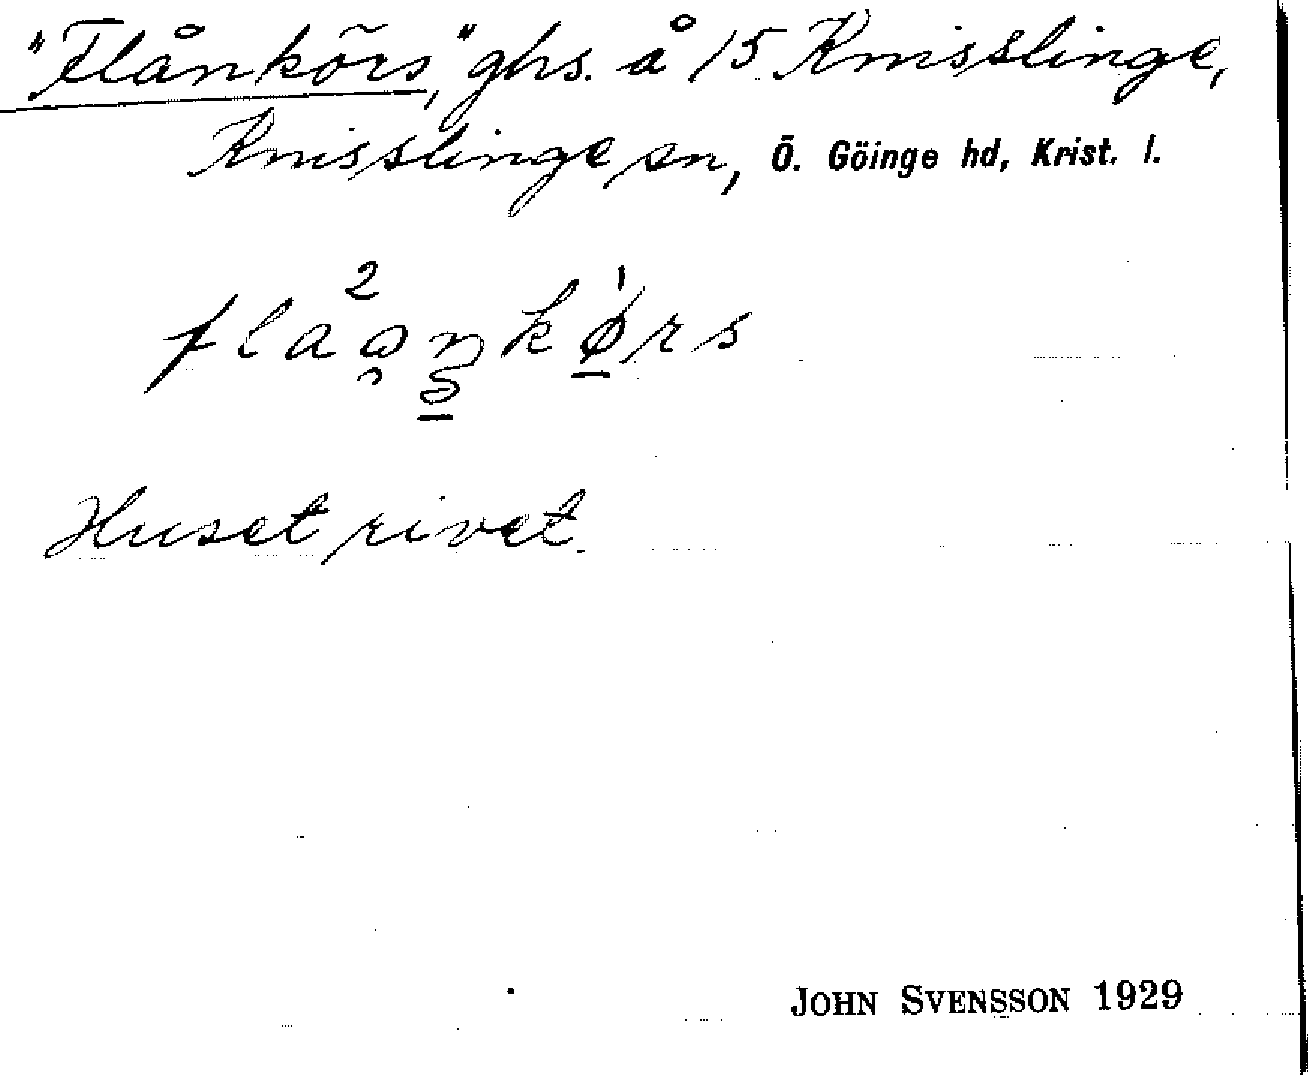 "Flånkörs," ghs. å 15 Knisslinge,
Knisslinge sn, Ö. Göinge hd, Krist. l.
Huset rivet.
JOHN SVENSSON 1929